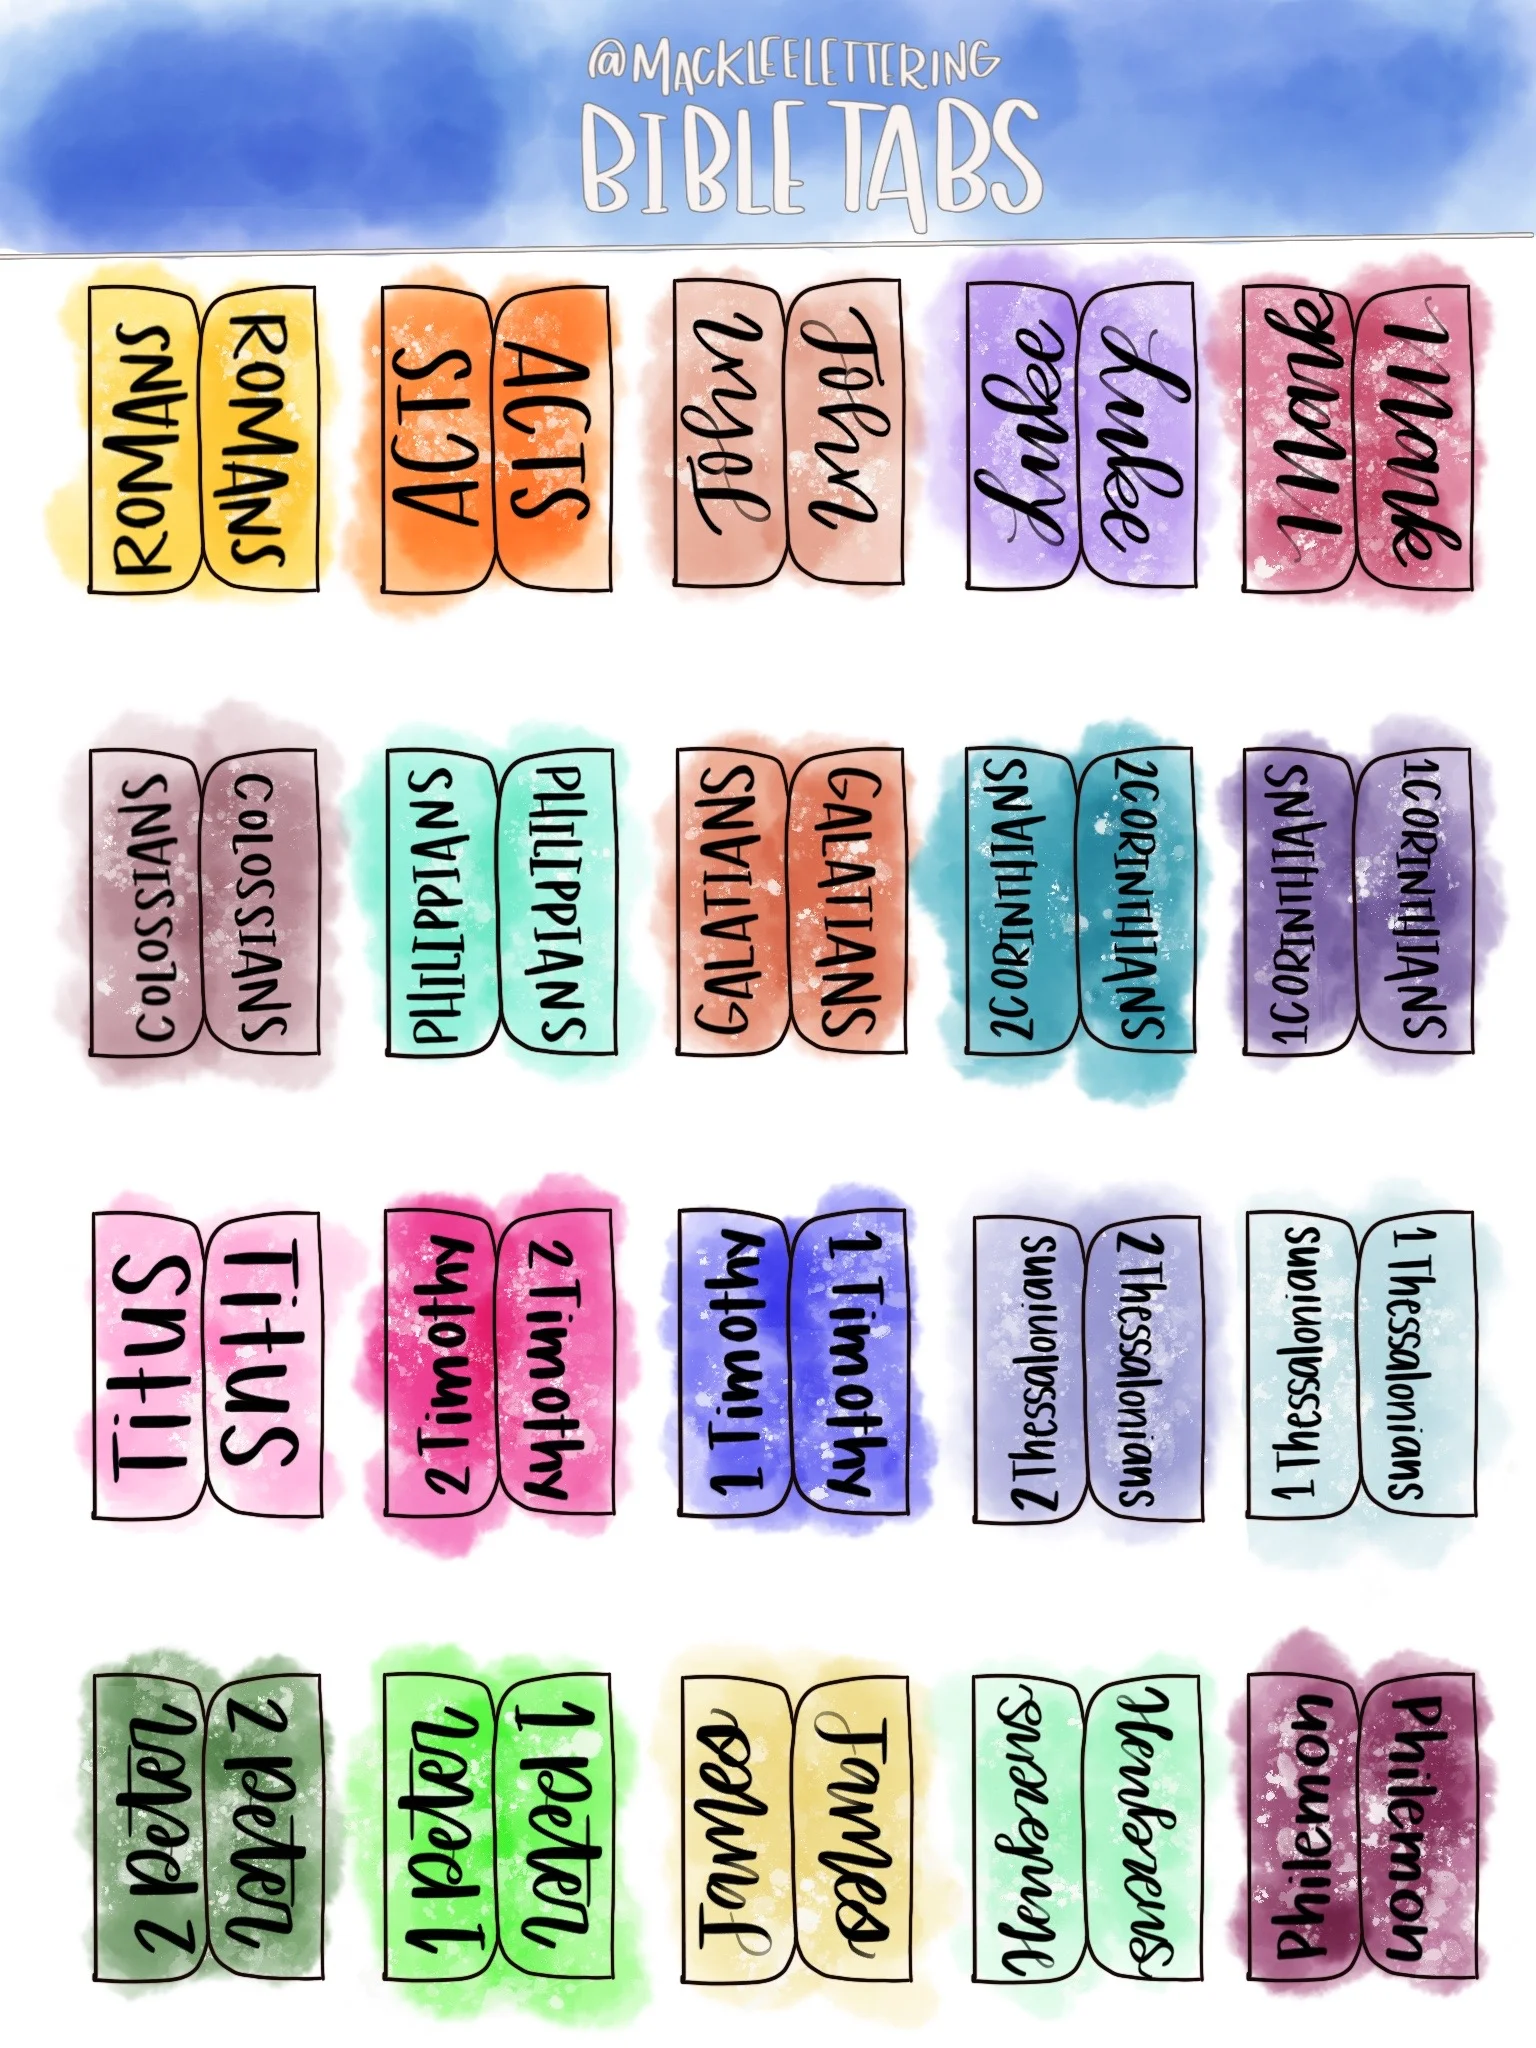 @MACKLEELETTERING
BIBLE TABS
ROMANS
ROMANS
ACTS
ACTS
John
John
Luke
Luke
Mark
Mark
COLOSSIANS
COLOSSIANS
PHILIPPIANS
PHILIPPIANS
GALATIANS
GALATIANS
2CORINTHIANS
2CORINTHIANS
1CORINTHIANS
1CORINTHIANS
Titus
Titus
2 Timothy
2 Timothy
1 Timothy
1 Timothy
2 Thessalonians
2 Thessalonians
1 Thessalonians
1 Thessalonians
2 Peter
2 Peter
1 Peter
1 Peter
James
James
Hewbrews
Hewbrews
Philemon
Philemon